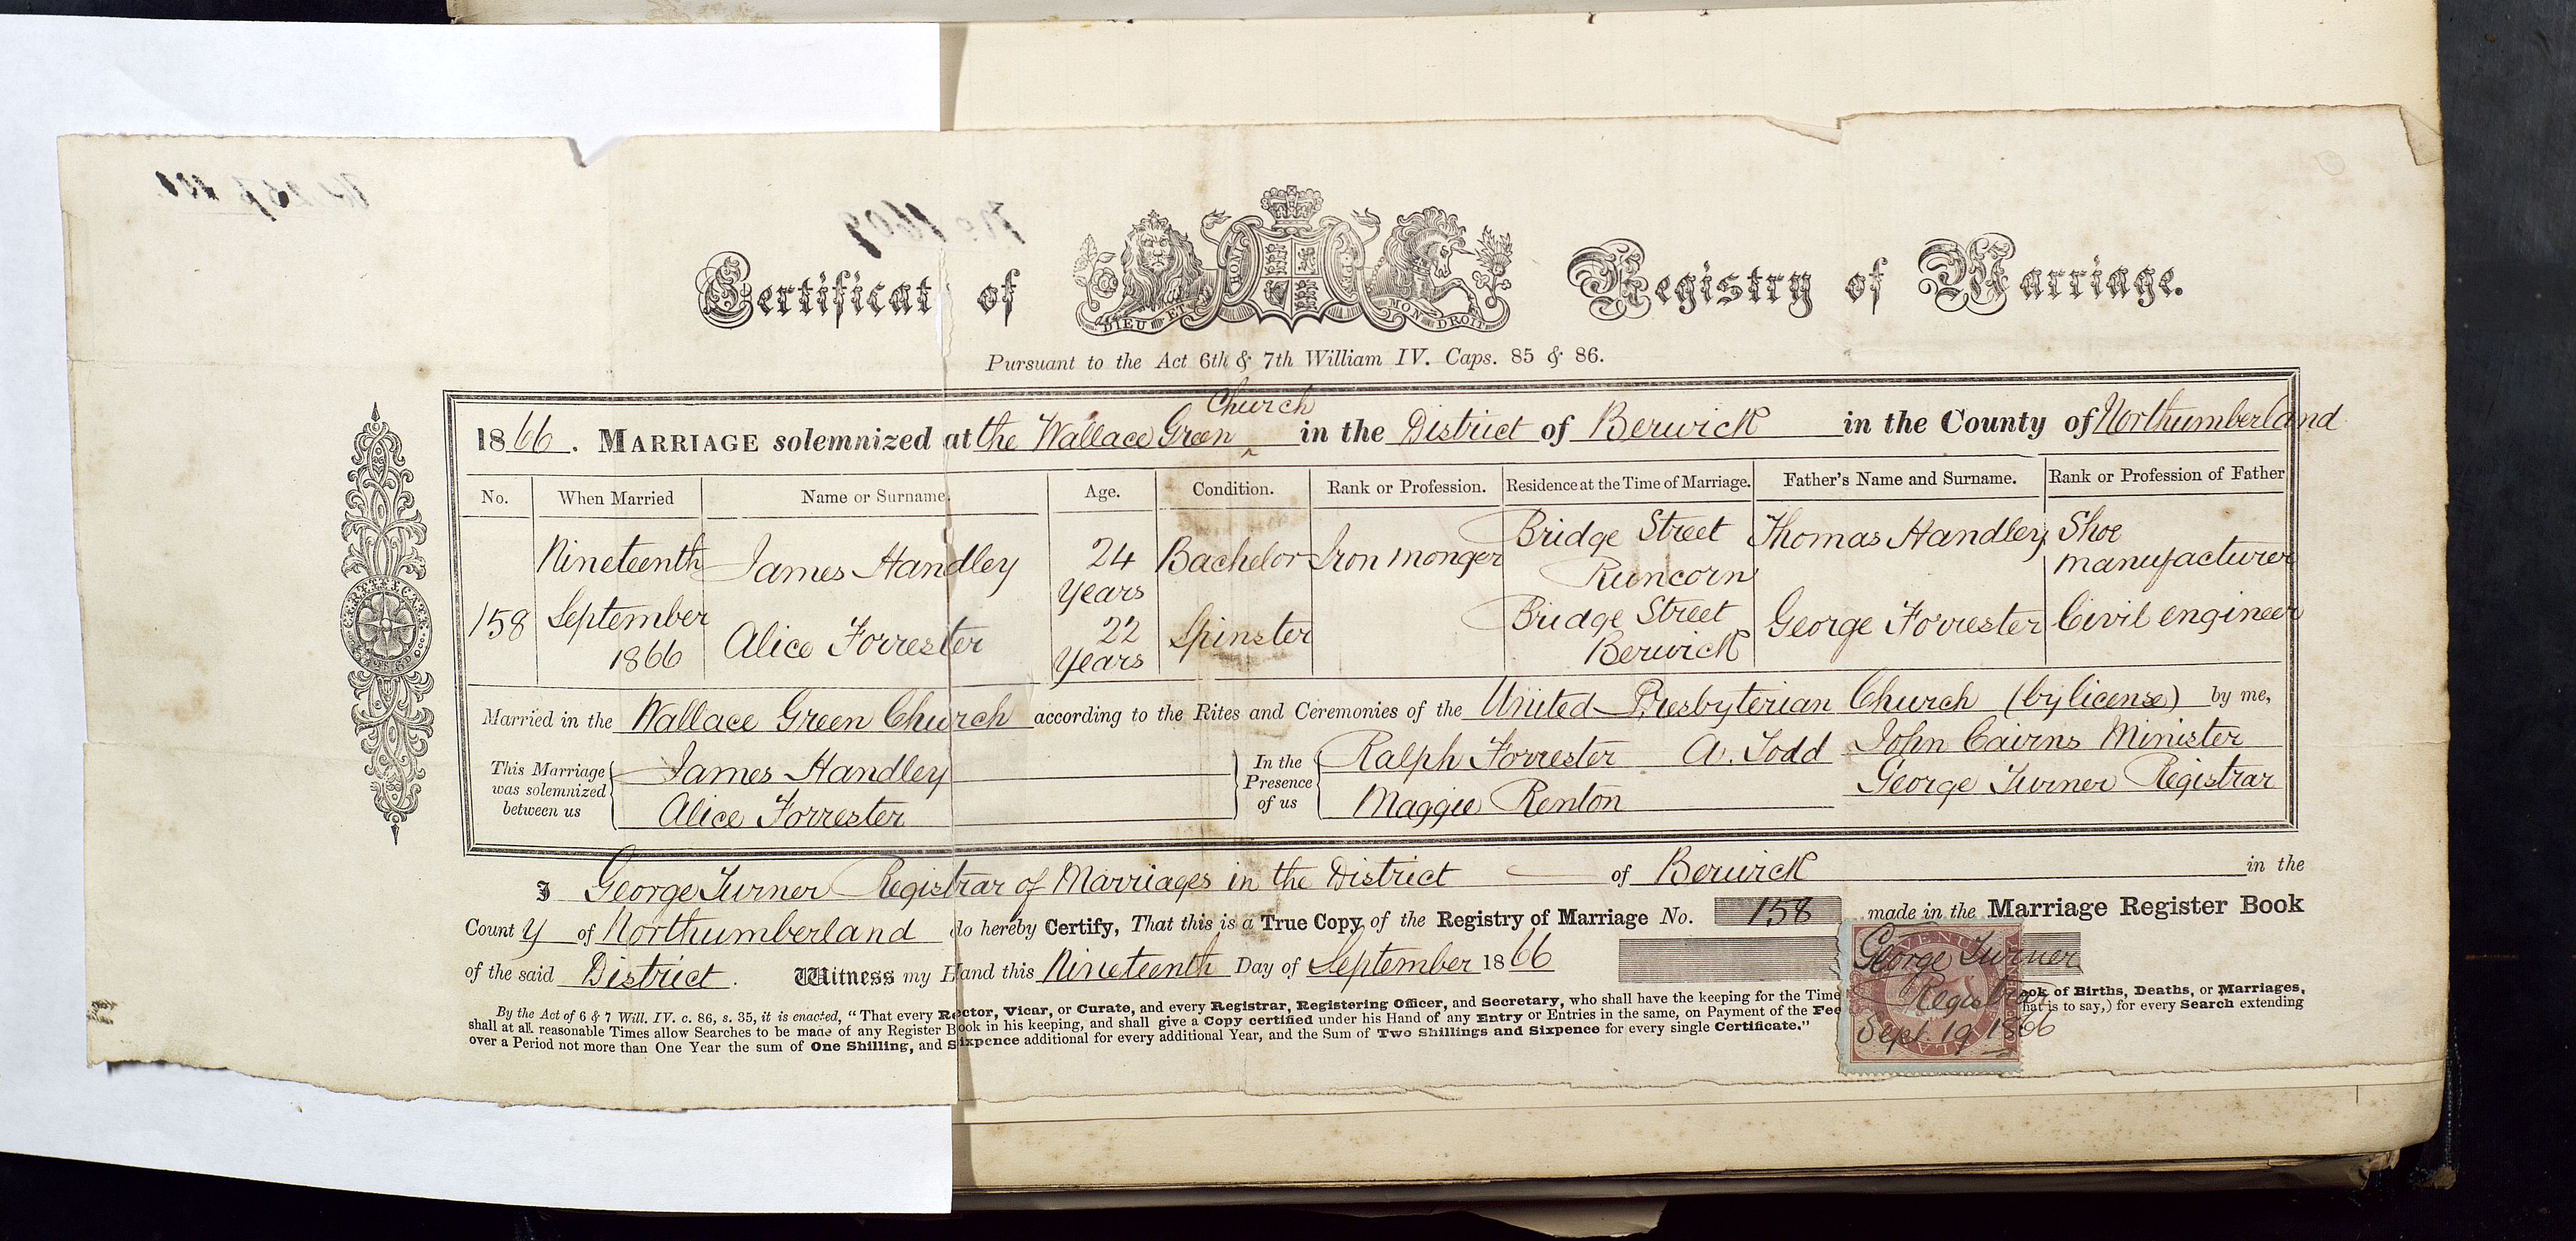 No 1609
Certificate of Registry of Marriage.
HONI
DIEU ET MON DROIT
Pursuant to the Act 6th & 7th William IV. Caps. 85 & 86.
Church
1866. MARRIAGE solemnized at the Wallace Green ^ in the District of Berwick in the County of Northumberland
No. When Married Name or Surname. Age. Condition. Rank or Profession. Residence at the Time of Marriage. Father's Name and Surname. Rank or Profession of Father
158 Nineteenth September 1866
James Handley 24 Years Bachelor Iron monger Bridge Street Runcorn Thomas Handley Shoe manufacturer
Alice Forrester 22 Years Spinster Bridge Street Berwick George Forrester Civil engineer
Married in the Wallace Green Church according to the Rites and Ceremonies of the United Presbyterian Church (by license) by me,
This Marriage was solemnized between us
James Handley
Alice Forrester
In the Presence of us
Ralph Forrester A. Todd
Maggie Renton
John Cairns Minister
George Turner Registrar
I George Turner Registrar of Marriages in the District of Berwick in the
County of Northumberland do hereby Certify, That this is a True Copy of the Registry of Marriage No. 158 made in the Marriage Register Book
of the said District. Witness my Hand this Nineteenth Day of September 1866
George Turner
Registrar
Sept. 19 1866
By the Act of 6 & 7 Will. IV. c. 86, s. 35, it is enacted, "That every Rector, Vicar, or Curate, and every Registrar, Registering Officer, and Secretary, who shall have the keeping for the Time ook of Births, Deaths, or Marriages,
shall at all reasonable Times allow Searches to be made of any Register Book in his keeping, and shall give a Copy certified under his Hand of any Entry or Entries in the same, on Payment of the Fee hat is to say,) for every Search extending
over a Period not more than One Year the sum of One Shilling, and Sixpence additional for every additional Year, and the Sum of Two Shillings and Sixpence for every single Certificate."